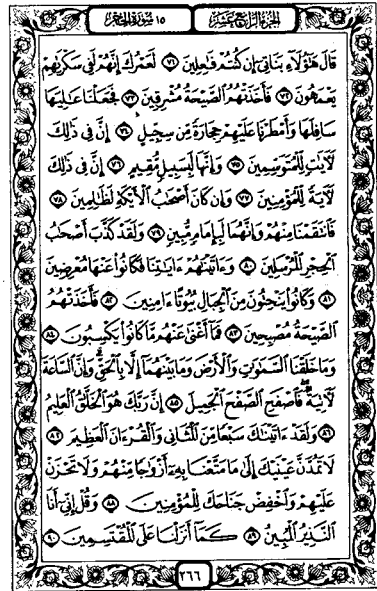 الجزء الرابع عشر ١٥ سورة الحجر
قَالَ هَٰٓؤُلَآءِ بَنَاتِىٓ إِن كُنتُمْ فَٰعِلِينَ ٧١ لَعَمْرُكَ إِنَّهُمْ لَفِى سَكْرَتِهِمْ
يَعْمَهُونَ ٧٢ فَأَخَذَتْهُمُ ٱلصَّيْحَةُ مُشْرِقِينَ ٧٣ فَجَعَلْنَا عَٰلِيَهَا
سَافِلَهَا وَأَمْطَرْنَا عَلَيْهِمْ حِجَارَةً مِّن سِجِّيلٍ ٧٤ إِنَّ فِى ذَٰلِكَ
لَءَايَٰتٍ لِّلْمُتَوَسِّمِينَ ٧٥ وَإِنَّهَا لَبِسَبِيلٍ مُّقِيمٍ ٧٦ إِنَّ فِى ذَٰلِكَ
لَءَايَةً لِّلْمُؤْمِنِينَ ٧٧ وَإِن كَانَ أَصْحَٰبُ ٱلْأَيْكَةِ لَظَٰلِمِينَ ٧٨
فَٱنتَقَمْنَا مِنْهُمْ وَإِنَّهُمَا لَبِإِمَامٍ مُّبِينٍ ٧٩ وَلَقَدْ كَذَّبَ أَصْحَٰبُ
ٱلْحِجْرِ ٱلْمُرْسَلِينَ ٨٠ وَءَاتَيْنَٰهُمْ ءَايَٰتِنَا فَكَانُوا۟ عَنْهَا مُعْرِضِينَ
٨١ وَكَانُوا۟ يَنْحِتُونَ مِنَ ٱلْجِبَالِ بُيُوتًا ءَامِنِينَ ٨٢ فَأَخَذَتْهُمُ
ٱلصَّيْحَةُ مُصْبِحِينَ ٨٣ فَمَآ أَغْنَىٰ عَنْهُم مَّا كَانُوا۟ يَكْسِبُونَ ٨٤
وَمَا خَلَقْنَا ٱلسَّمَٰوَٰتِ وَٱلْأَرْضَ وَمَا بَيْنَهُمَآ إِلَّا بِٱلْحَقِّ وَإِنَّ ٱلسَّاعَةَ
لَءَاتِيَةٌ فَٱصْفَحِ ٱلصَّفْحَ ٱلْجَمِيلَ ٨٥ إِنَّ رَبَّكَ هُوَ ٱلْخَلَّٰقُ ٱلْعَلِيمُ
٨٦ وَلَقَدْ ءَاتَيْنَٰكَ سَبْعًا مِّنَ ٱلْمَثَانِى وَٱلْقُرْءَانَ ٱلْعَظِيمَ ٨٧
لَا تَمُدَّنَّ عَيْنَيْكَ إِلَىٰ مَا مَتَّعْنَا بِهِۦٓ أَزْوَٰجًا مِّنْهُمْ وَلَا تَحْزَنْ
عَلَيْهِمْ وَٱخْفِضْ جَنَاحَكَ لِلْمُؤْمِنِينَ ٨٨ وَقُلْ إِنِّىٓ أَنَا
ٱلنَّذِيرُ ٱلْمُبِينُ ٨٩ كَمَآ أَنزَلْنَا عَلَى ٱلْمُقْتَسِمِينَ ٩٠
٢٦٦